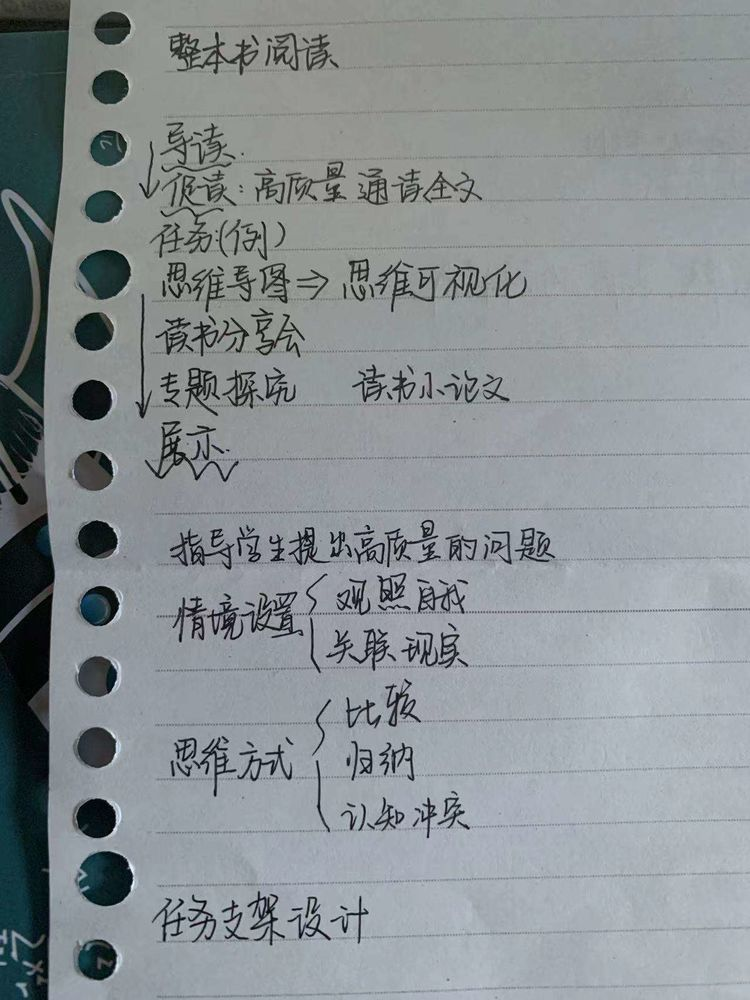 整本书阅读
导读.
促读：高质量通读全文
任务(例)
思维导图⇒思维可视化
读书分享会
专题探究 读书小论文
展示.
指导学生提出高质量的问题
情境设置
观照自我
关联现实
思维方式
比较
归纳
认知冲突
任务支架设计